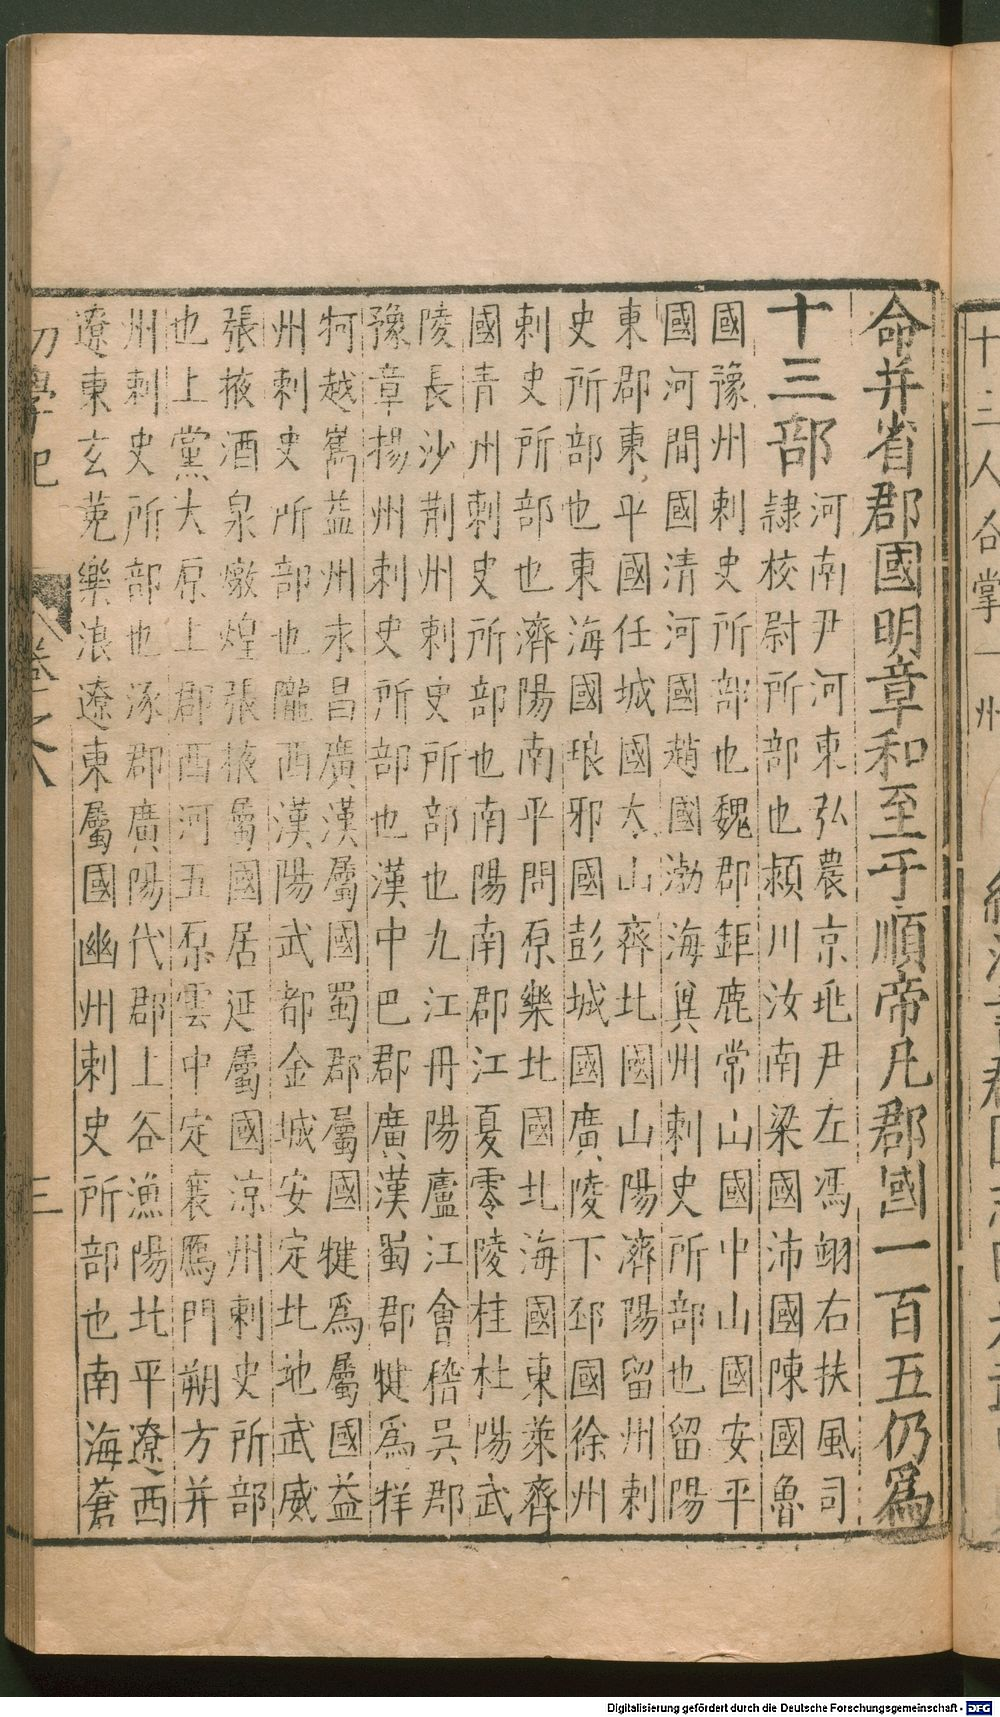 十三人合掌一州
命并省郡國明章和至于順帝凡郡國一百五仍爲
十三部
河南尹河東弘農京兆尹左馮翊右扶風司
隷校尉所部也潁川汝南梁國沛國陳國魯
國豫州刺史所部也魏郡鉅鹿常山國中山國安平
國河間國清河國趙國渤海冀州刺史所部也留陽
東郡東平國任城國太山齊北國山陽濟陽留州刺
史所部也東海國琅邪國彭城國廣陵下邳國徐州
刺史所部也濟陽南平問原樂北國北海國東萊齊
國青州刺史所部也南陽南郡江夏零陵桂杜陽武
陵長沙荆州刺史所部也九江丹陽廬江會稽吳郡
豫章揚州刺史所部也漢中巴郡廣漢蜀郡犍爲牂
牱越嶲益州永昌廣漢屬國蜀郡屬國犍爲屬國益
州刺史所部也隴西漢陽武都金城安定北地武威
張掖酒泉燉煌張掖屬國居延屬國涼州刺史所部
也上黨大原上郡西河五原雲中定襄鴈門朔方并
州刺史所部也涿郡廣陽代郡上谷漁陽北平遼西
遼東玄菟樂浪遼東屬國幽州刺史所部也南海蒼
初學記 卷之八 三
Digitalisierung gefördert durch die Deutsche Forschungsgemeinschaft - DFG